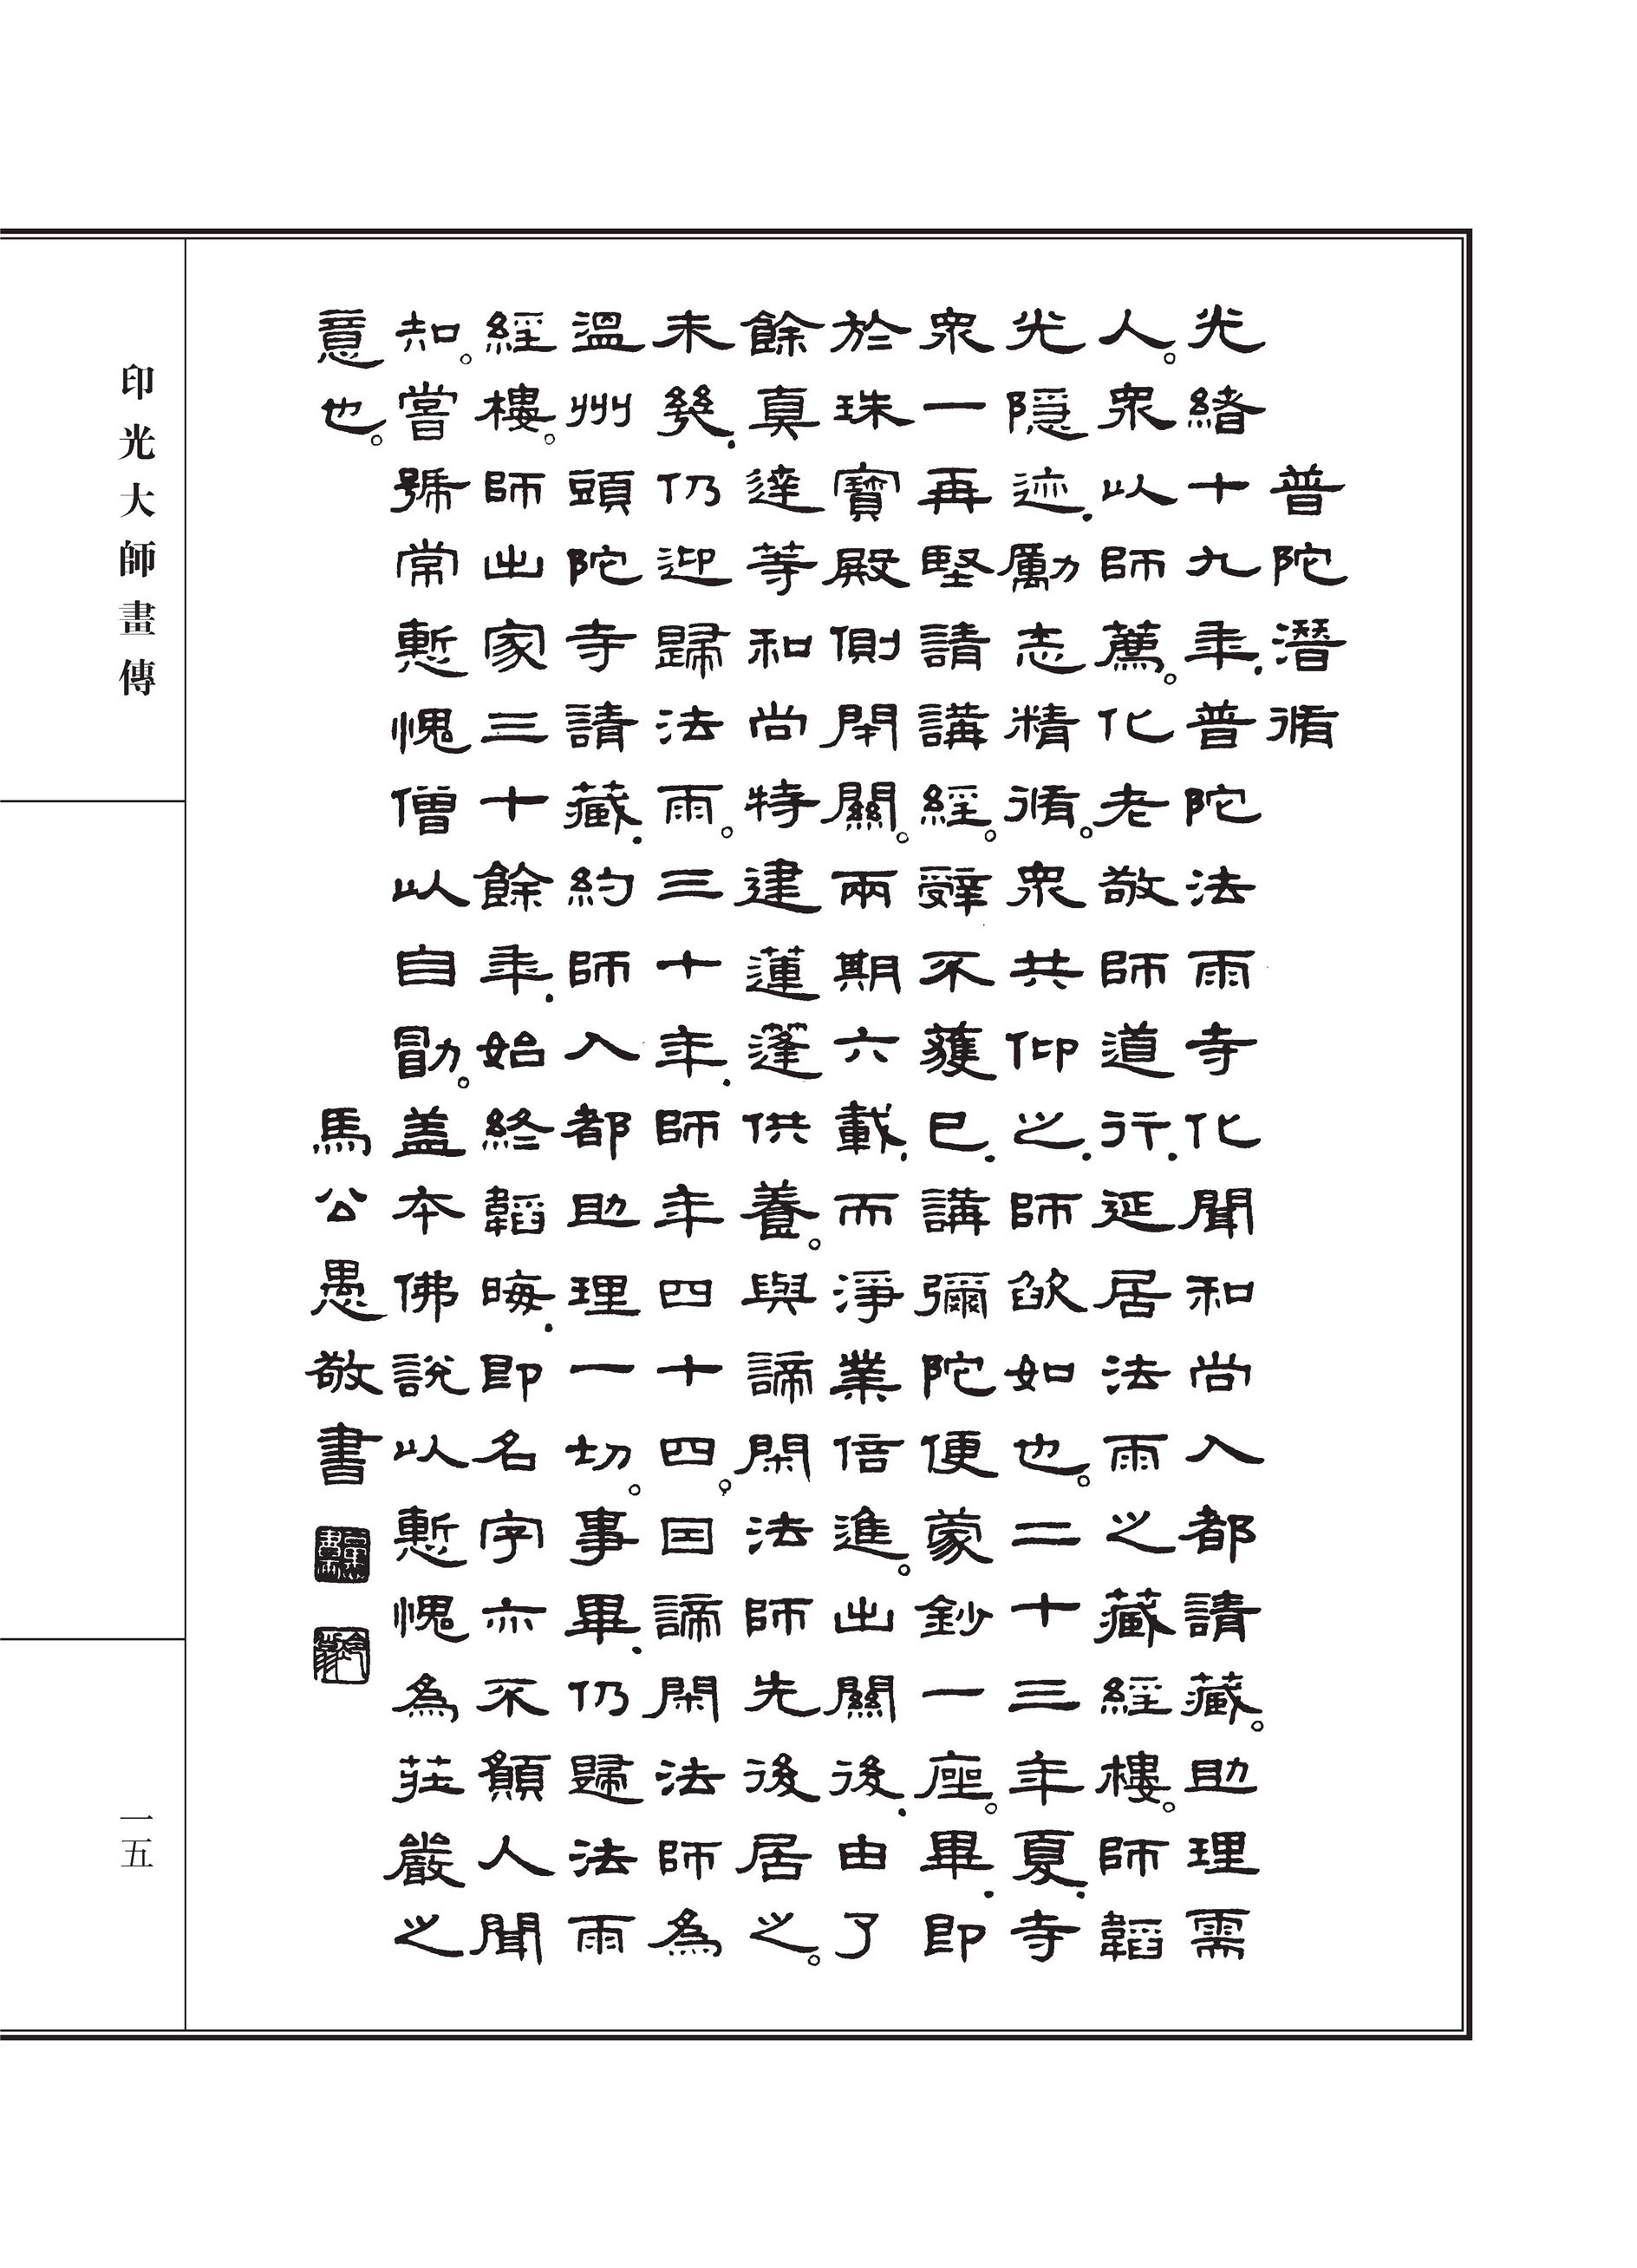 普陀潛脩
光緒十九年.普陀法雨寺化聞和尚入都請藏。助理需
人。衆以師薦。化老敬師道行.延居法雨之藏經樓。師韜
光隱迹.勵志精脩。衆共仰之.師欿如也。二十三年夏.寺
衆一再堅請講經。辭不獲已.講彌陀便蒙鈔一座。畢.即
於珠寶殿側閉關。兩期六載.而淨業倍進。出關後.由了
餘真達等和尚特建蓮蓬供養。與諦閑法師先後居之。
未幾.仍迎歸法雨。三十年.師年四十四。因諦閑法師為
溫州頭陀寺請藏.約師入都助理一切。事畢.仍歸法雨
經樓。師出家三十餘年.始終韜晦.即名字亦不願人聞
知。嘗號常慙愧僧以自勖。蓋本佛說以慙愧為莊嚴之
意也。
馬公愚敬書
印光大師畫傳
一五